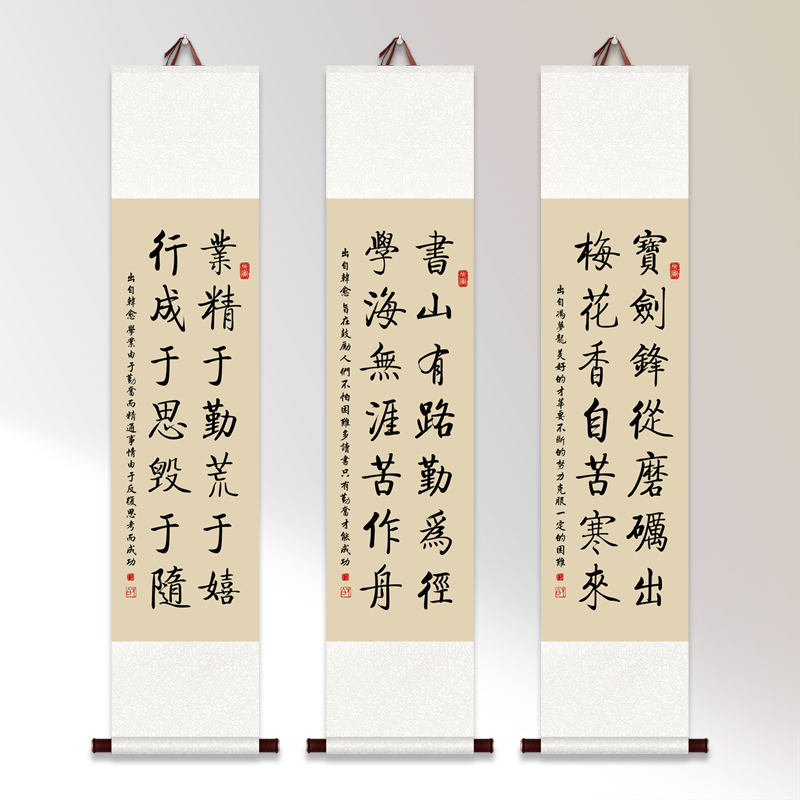 寶劍鋒從磨礪出
梅花香自苦寒來
出自馮夢龍 美好的才華要不斷的努力克服一定的困難
書山有路勤爲徑
學海無涯苦作舟
出自韓愈 旨在鼓勵人們不怕困難多讀書只有勤奮才能成功
業精于勤荒于嬉
行成于思毀于隨
出自韓愈 學業由于勤奮而精通事情由于反復思考而成功